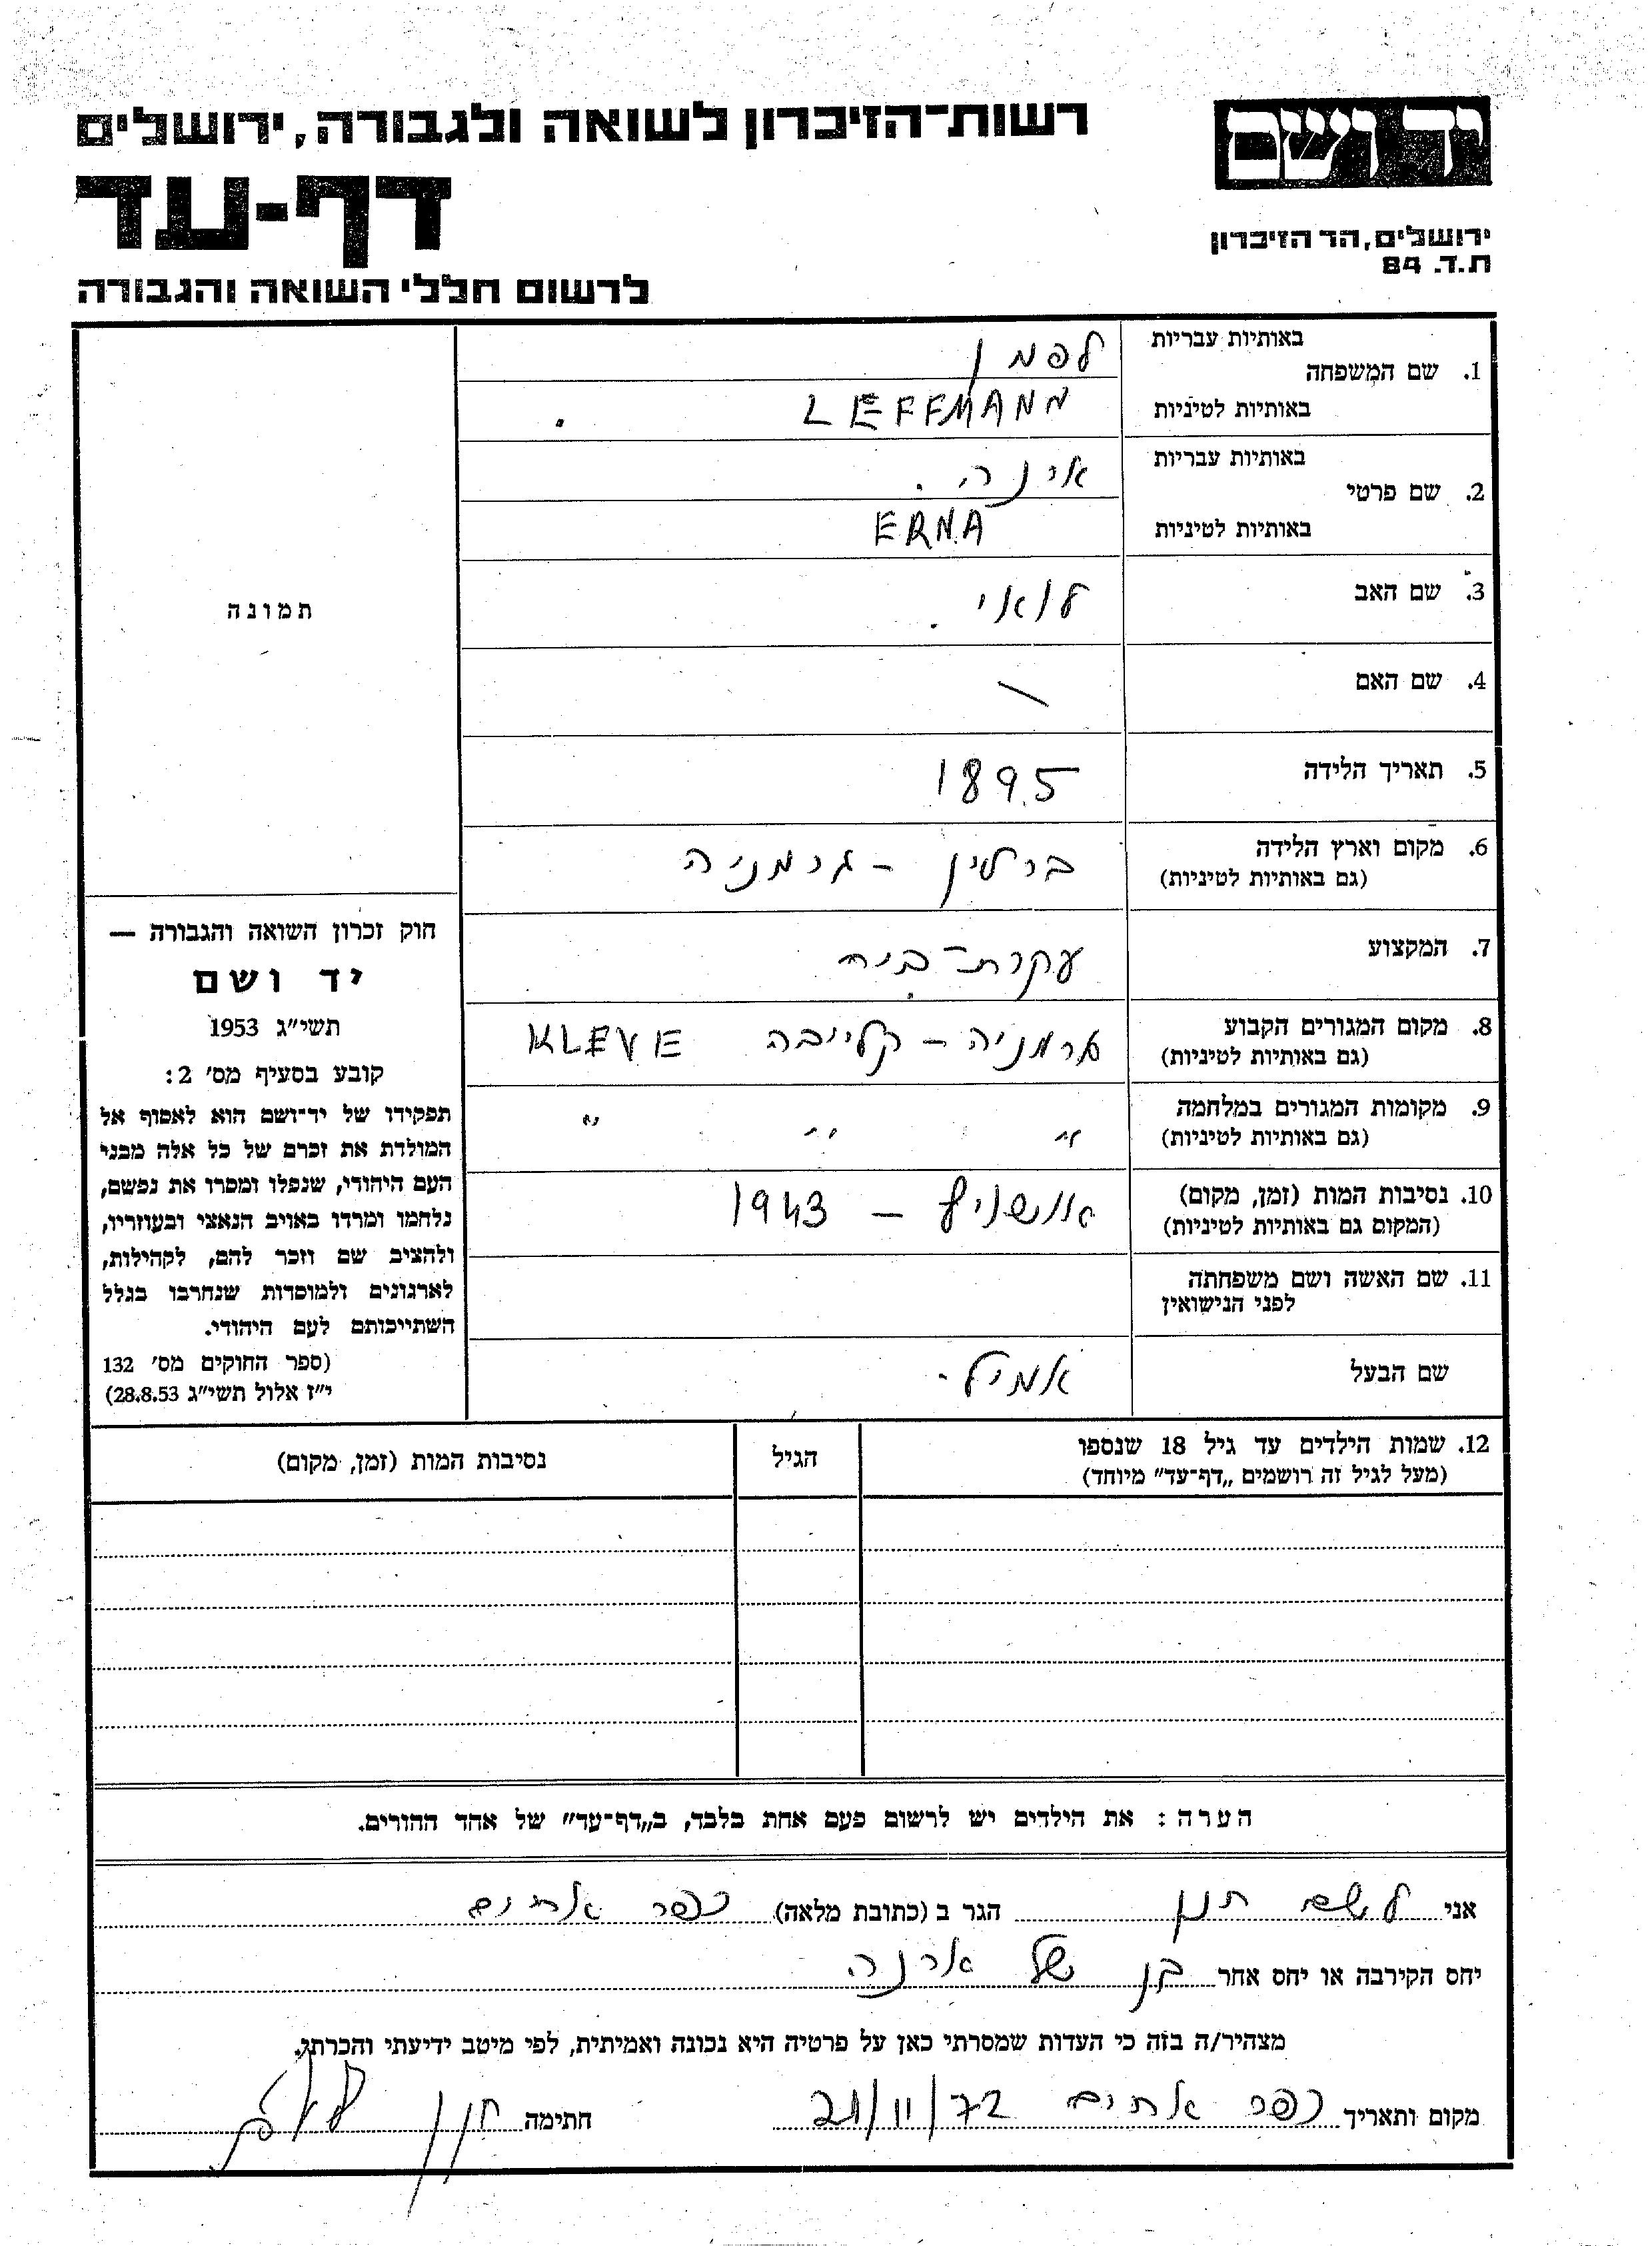 רשות־הזיכרון לשואה ולגבורה, ירושלים
יד ושם
דף-עד
ירושלים, הר הזיכרון
ת.ד. 84
לרשום חללי השואה והגבורה
באותיות עבריות
לפמן
1. שם המשפחה
באותיות לטיניות
LEFFMANN
באותיות עבריות
2. שם פרטי
באותיות לטיניות
ERNA
3. שם האב
לואי
4. שם האם
תמונה
5. תאריך הלידה
1895
6. מקום וארץ הלידה
(גם באותיות לטיניות)
ברלין - גרמניה
7. המקצוע
עקרת-בית
8. מקום המגורים הקבוע
(גם באותיות לטיניות)
גרמניה - קלייבה KLEVE
9. מקומות המגורים במלחמה
(גם באותיות לטיניות)
" " "
10. נסיבות המות (זמן, מקום)
(המקום גם באותיות לטיניות)
אושויץ - 1943
11. שם האשה ושם משפחתה
לפני הנישואין
שם הבעל
אמיל.
חוק זכרון השואה והגבורה —
יד ושם
תשי״ג 1953
קובע בסעיף מס׳ 2:
תפקידו של יד־ושם הוא לאסוף אל
המולדת את זכרם של כל אלה מבני
העם היהודי, שנפלו ומסרו את נפשם,
נלחמו ומרדו באויב הנאצי ובעוזריו,
ולהציב שם וזכר להם, לקהילות,
לארגונים ולמוסדות שנחרבו בגלל
השתייכותם לעם היהודי.
(ספר החוקים מס׳ 132
י״ז אלול תשי״ג 28.8.53)
12. שמות הילדים עד גיל 18 שנספו
(מעל לגיל זה רושמים „דף־עד״ מיוחד)
הגיל
נסיבות המות (זמן, מקום)
הערה: את הילדים יש לרשום פעם אחת בלבד, ב„דף־עד״ של אחד ההורים.
אני לשם חנן הגר ב (כתובת מלאה) כפר אחים
יחס הקירבה או יחס אחר בן של ארנה
מצהיר/ה בזה כי העדות שמסרתי כאן על פרטיה היא נכונה ואמיתית, לפי מיטב ידיעתי והכרתי.
מקום ותאריך כפר אחים 21/11/72 חתימה חנן